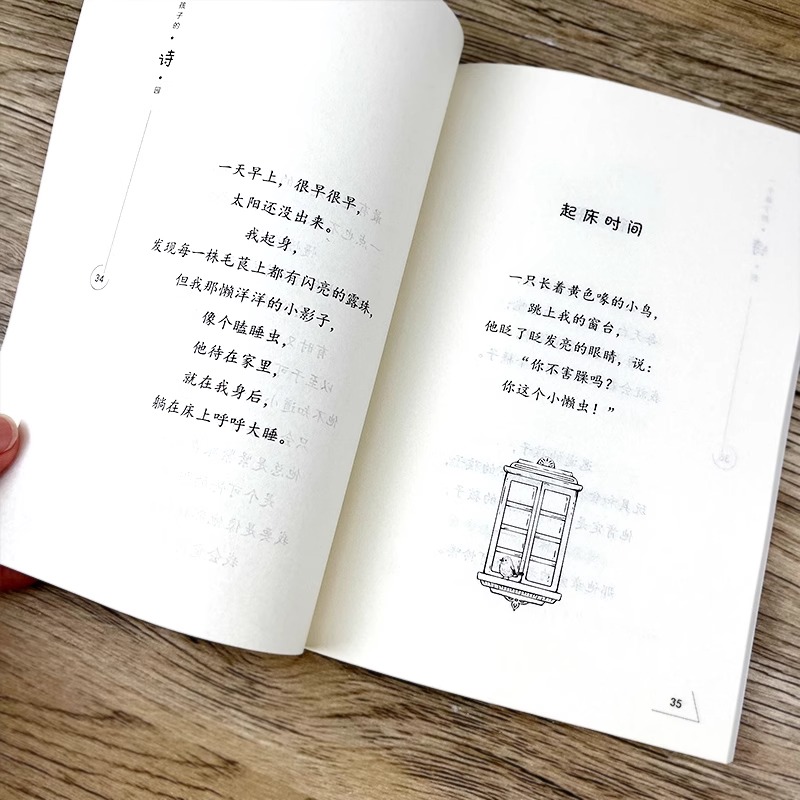 孩子的·诗·园
一天早上，很早很早，
太阳还没出来。
我起身，
发现每一株毛茛上都有闪亮的露珠，
但我那懒洋洋的小影子，
像个瞌睡虫，
他待在家里，
就在我身后，
躺在床上呼呼大睡。
34
起床时间
一只长着黄色喙的小鸟，
跳上我的窗台，
他眨了眨发亮的眼睛，说：
“你不害臊吗？
你这个小懒虫！”
35